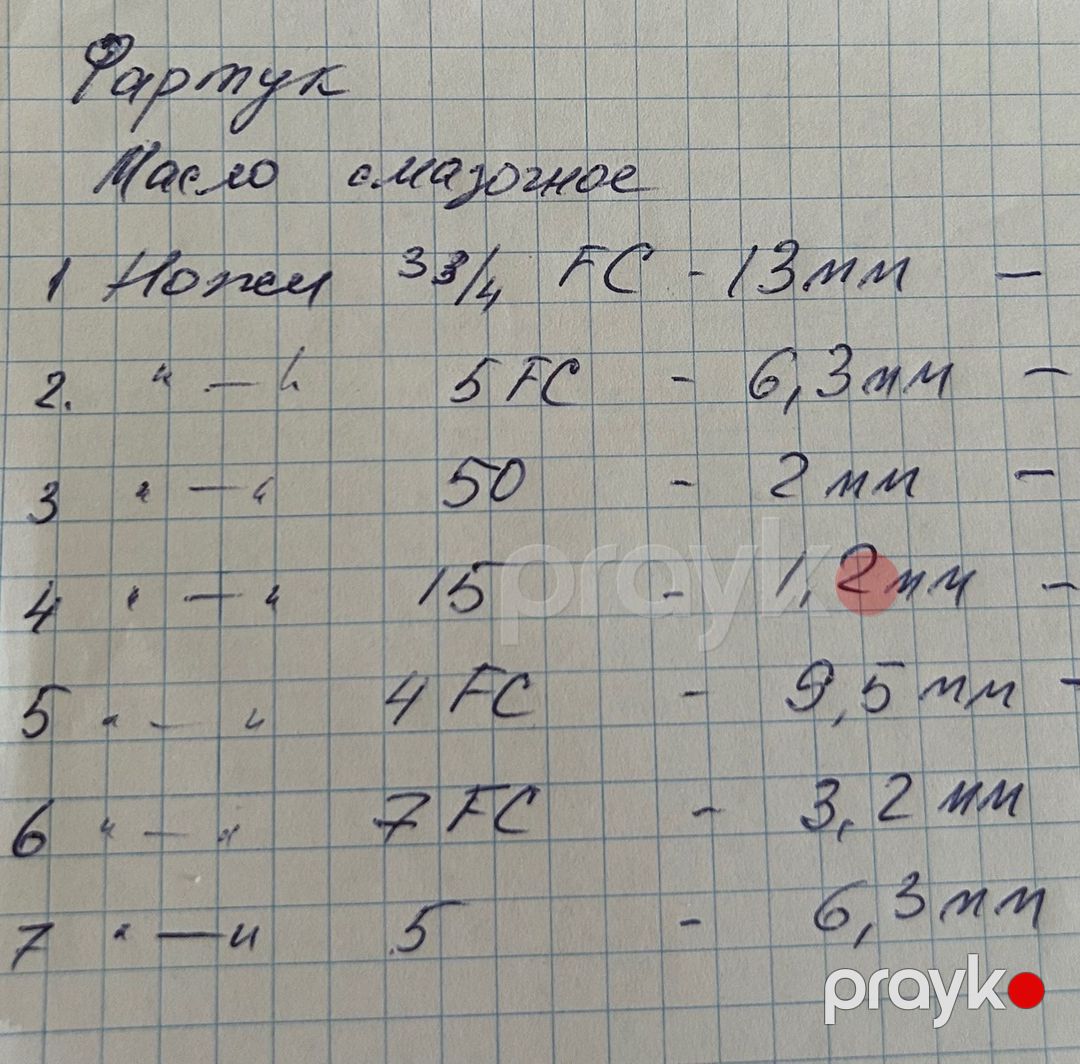 Фартук
Масло смазочное
1 Ножи 3 3/4 FC - 13мм -
2. " — " 5 FC - 6,3мм -
3 " — " 50 - 2 мм -
4 " — " 15 - 1,2мм -
5 " — " 4 FC - 9,5 мм -
6 " — " 7 FC - 3,2 мм
7 " — " 5 - 6,3мм
prayk
prayk